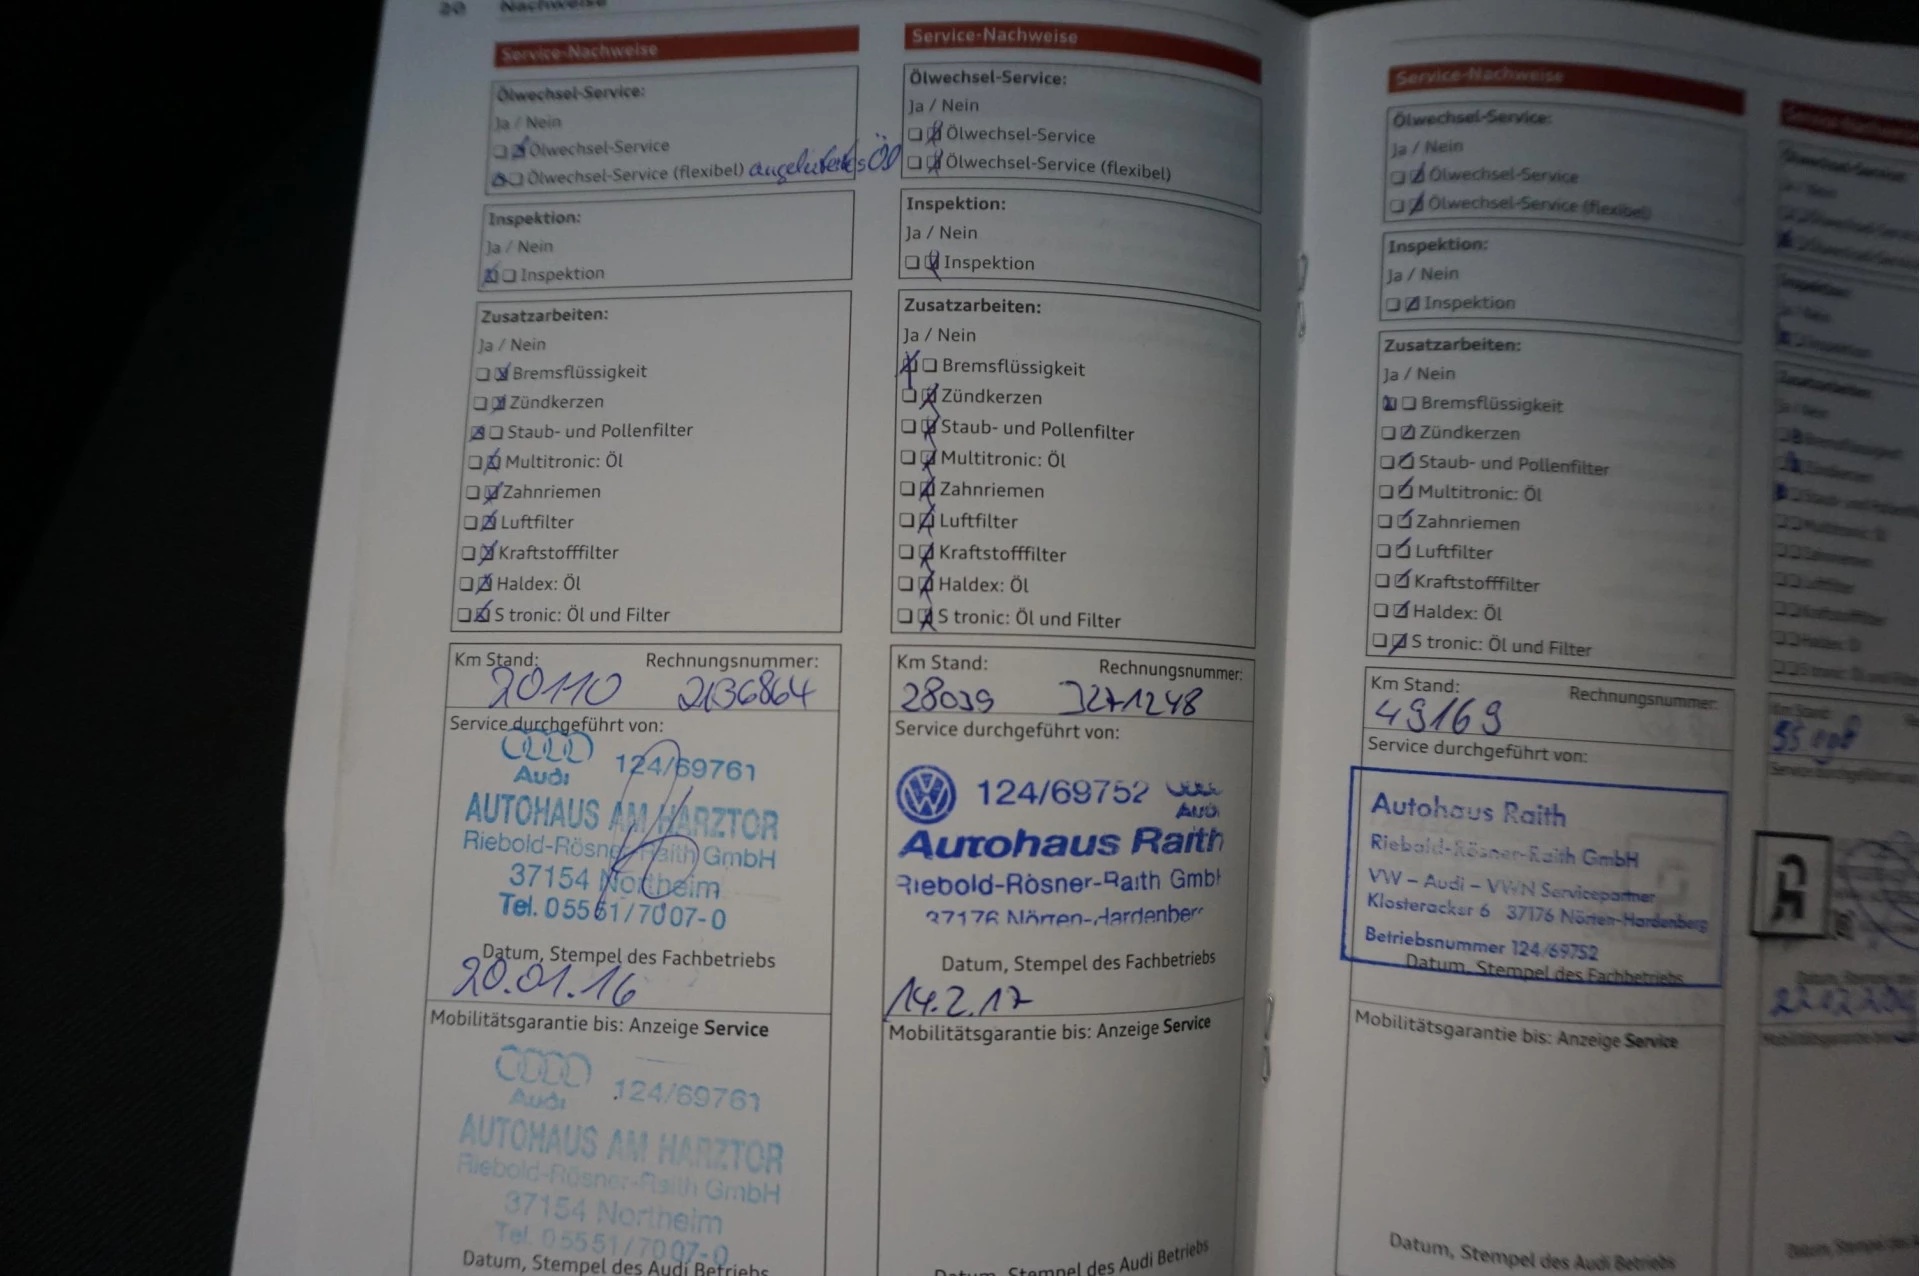 20 Nachweise
Service-Nachweise
Ölwechsel-Service:
Ja / Nein
Ölwechsel-Service
Ölwechsel-Service (flexibel) angeliefertes Öl
Inspektion:
Ja / Nein
Inspektion
Zusatzarbeiten:
Ja / Nein
Bremsflüssigkeit
Zündkerzen
Staub- und Pollenfilter
Multitronic: Öl
Zahnriemen
Luftfilter
Kraftstofffilter
Haldex: Öl
S tronic: Öl und Filter
Km Stand: Rechnungsnummer:
20110 2136864
Service durchgeführt von:
Audi 124/69761
AUTOHAUS AM HARZTOR
Riebold-Rösner-Raith GmbH
37154 Northeim
Tel. 05561/7007-0
Datum, Stempel des Fachbetriebs
20.01.16
Mobilitätsgarantie bis: Anzeige Service
Audi 124/69761
AUTOHAUS AM HARZTOR
Riebold-Rösner-Raith GmbH
37154 Northeim
Tel. 05551/7007-0
Datum, Stempel des Audi Betriebs
Service-Nachweise
Ölwechsel-Service:
Ja / Nein
Ölwechsel-Service
Ölwechsel-Service (flexibel)
Inspektion:
Ja / Nein
Inspektion
Zusatzarbeiten:
Ja / Nein
Bremsflüssigkeit
Zündkerzen
Staub- und Pollenfilter
Multitronic: Öl
Zahnriemen
Luftfilter
Kraftstofffilter
Haldex: Öl
S tronic: Öl und Filter
Km Stand: Rechnungsnummer:
28039 3271248
Service durchgeführt von:
124/69752 Audi
Autohaus Raith
Riebold-Rösner-Raith GmbH
37176 Nörten-Hardenberg
Datum, Stempel des Fachbetriebs
14.2.17
Mobilitätsgarantie bis: Anzeige Service
Datum, Stempel des Audi Betriebs
Service-Nachweise
Ölwechsel-Service:
Ja / Nein
Ölwechsel-Service
Ölwechsel-Service (flexibel)
Inspektion:
Ja / Nein
Inspektion
Zusatzarbeiten:
Ja / Nein
Bremsflüssigkeit
Zündkerzen
Staub- und Pollenfilter
Multitronic: Öl
Zahnriemen
Luftfilter
Kraftstofffilter
Haldex: Öl
S tronic: Öl und Filter
Km Stand: Rechnungsnummer:
49169
Service durchgeführt von:
Autohaus Raith
Riebold-Rösner-Raith GmbH
VW - Audi - VWN Servicepartner
Klosteracker 6 37176 Nörten-Hardenberg
Betriebsnummer 124/69752
Datum, Stempel des Fachbetriebs
Mobilitätsgarantie bis: Anzeige Service
Datum, Stempel des Audi Betriebs